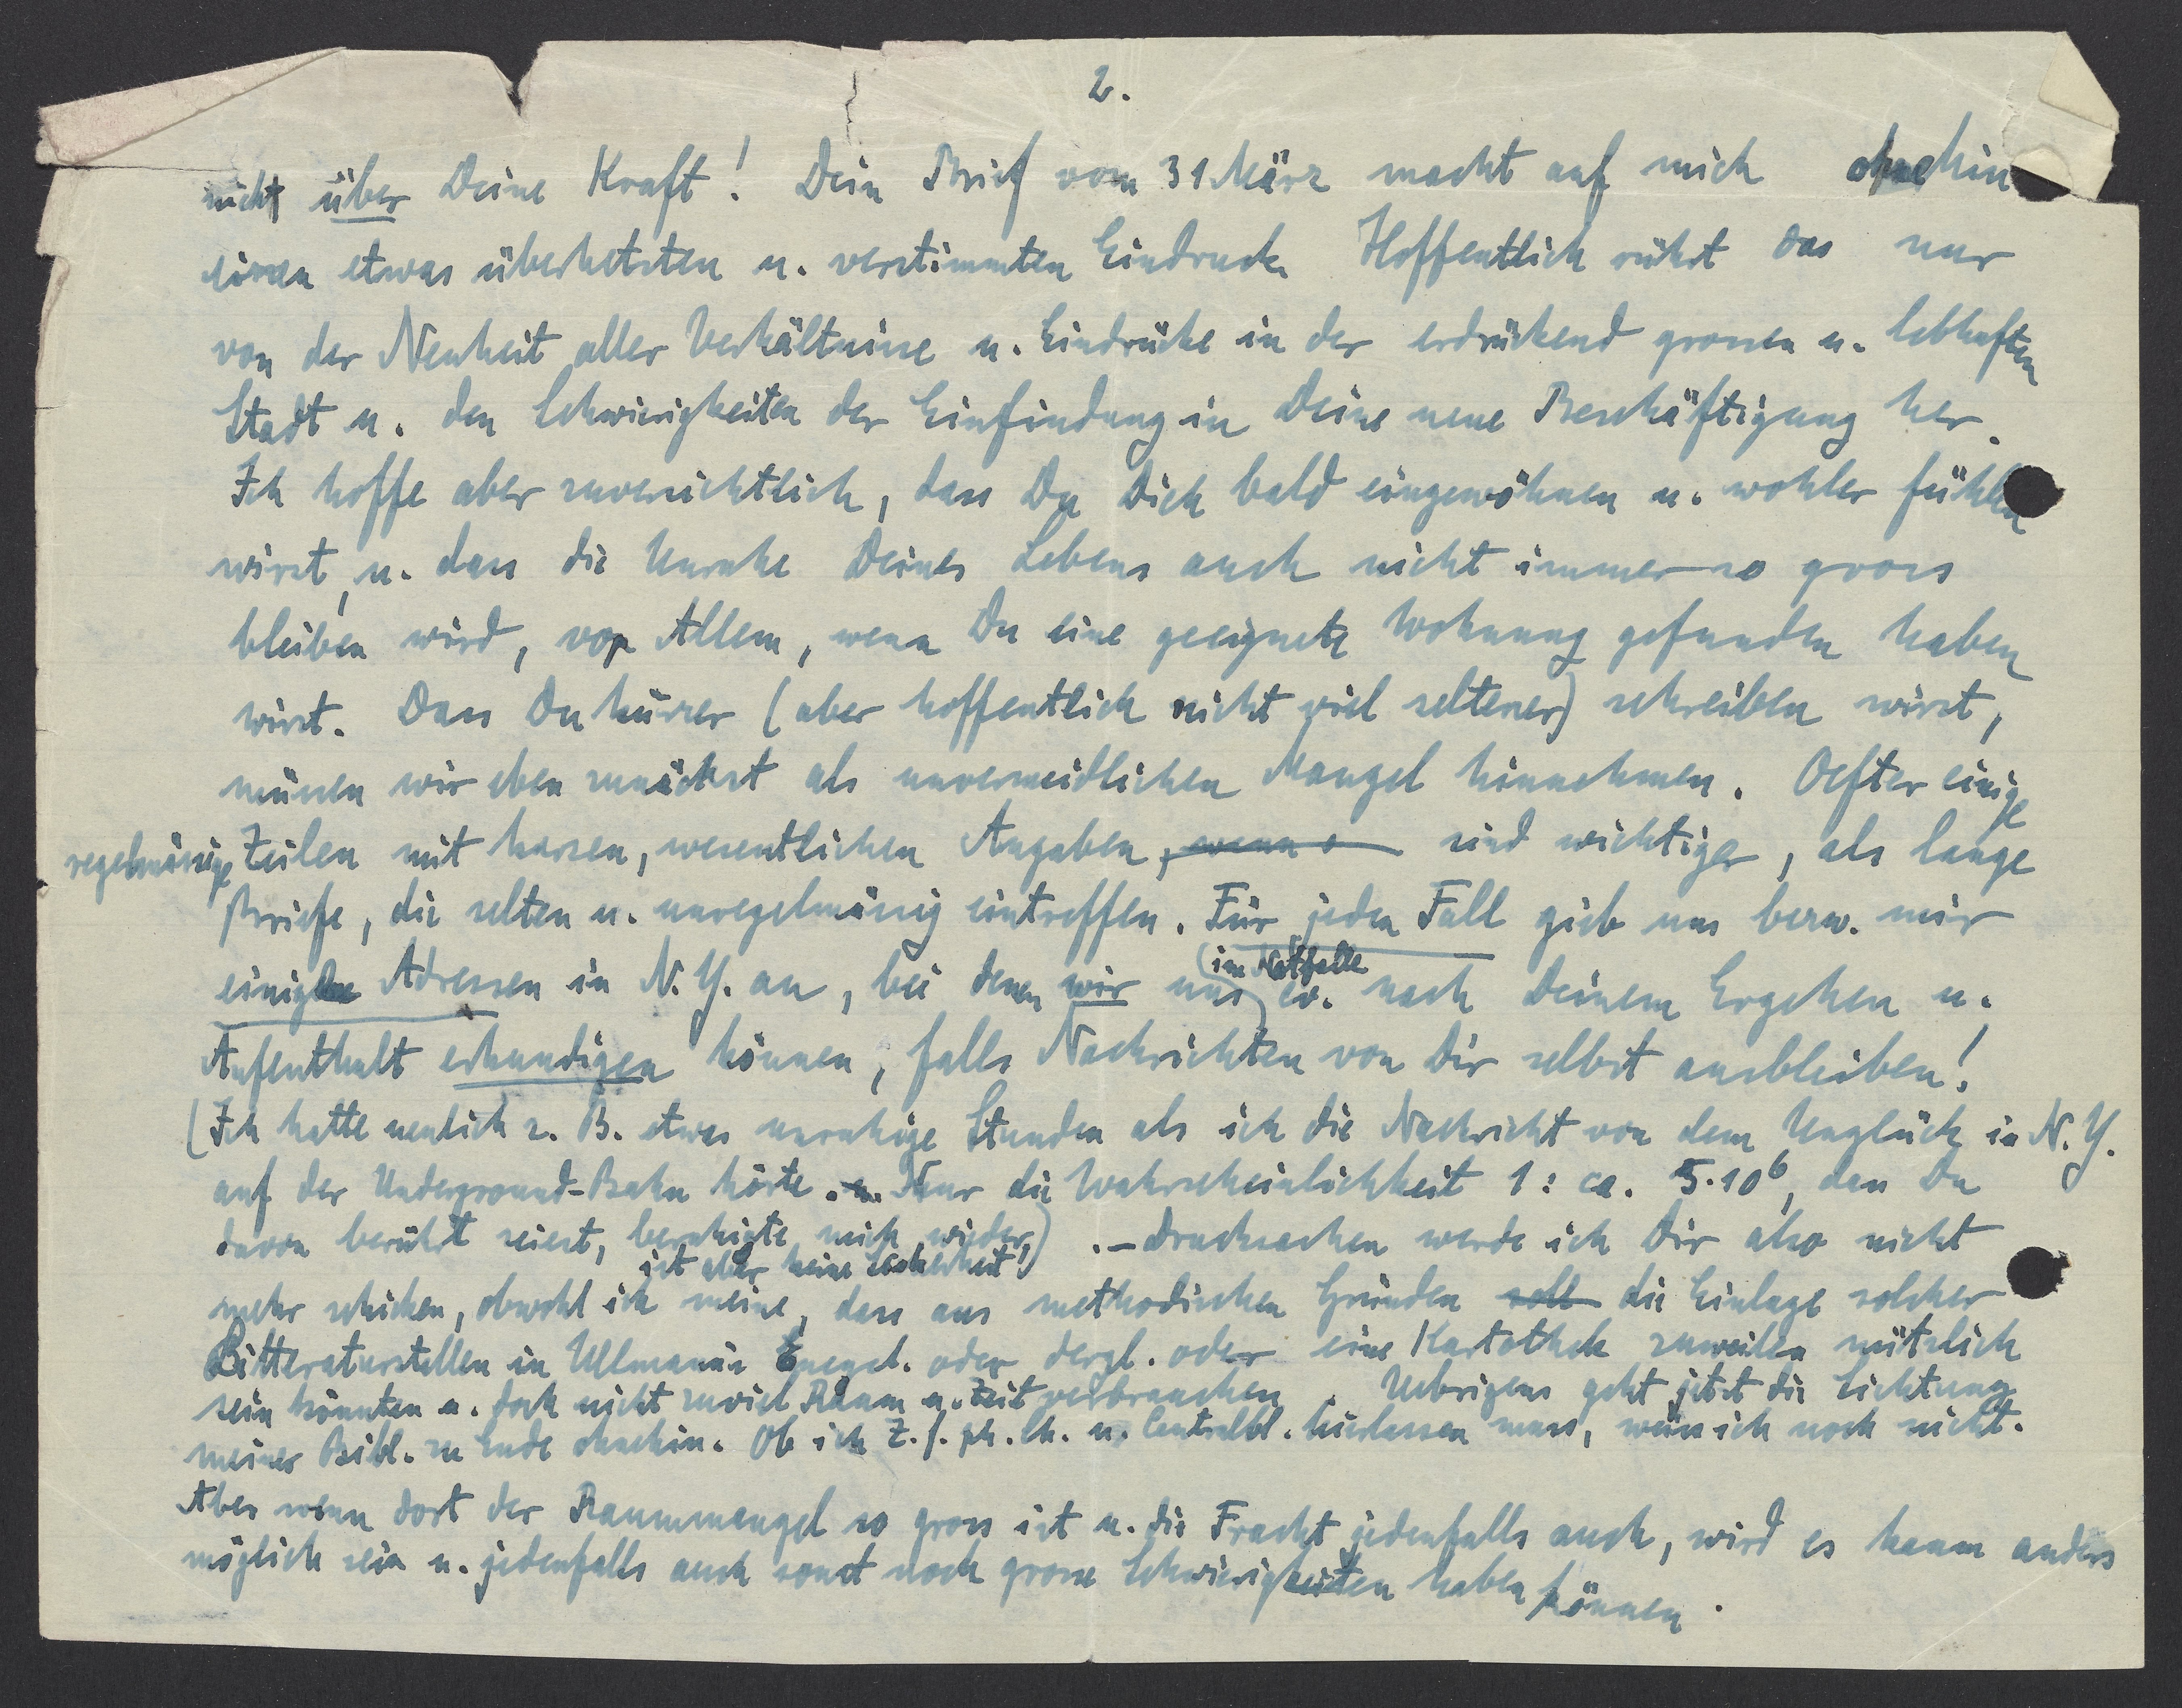 2.
nicht über Deine Kraft! Dein Brief vom 31 März macht auf mich ohnehin
einen etwas überhetzten u. verstimmten Eindruck. Hoffentlich rührt das nur
von der Neuheit aller Verhältnisse u. Eindrücke in der erdrückend grossen u. lebhaften
Stadt u. den Schwierigkeiten der Einfindung in Deine neue Beschäftigung her.
Ich hoffe aber zuversichtlich, dass Du Dich bald eingewöhnen u. wohler fühlen
wirst, u. dass die Unruhe Deines Lebens auch nicht immer so gross
bleiben wird, vor Allem, wenn Du eine geeignete Wohnung gefunden haben
wirst. Dass Du kürzer (aber hoffentlich nicht viel seltener) schreiben wirst,
müssen wir eben zunächst als unvermeidlichen Mangel hinnehmen. Oefter einige
regelmässige Zeilen mit kurzen, wesentlichen Angaben, wenn s sind wichtiger, als lange
Briefe, die selten u. unregelmässig eintreffen. Für jeden Fall gieb uns bezw. mir
einige Adressen in N.Y. an, bei denen wir uns (im Notfalle) ev. nach Deinem Ergehen u.
Aufenthalt erkundigen können, falls Nachrichten von Dir selbst ausbleiben!
(Ich hatte neulich z. B. etwas unruhige Stunden als ich die Nachricht von dem Unglück in N.Y.
auf der Underground-Bahn hörte. u. Nur die Wahrscheinlichkeit 1: ca. 5·10⁶, dass Du
davon berührt seiest, beruhigte mich wieder,
ist aber keine Sicherheit!) .– Drucksachen werde ich Dir also nicht
mehr schicken, obwohl ich meine, dass aus methodischen Gründen soll die Einlage solcher
Litteraturstellen in Ullmann's Encycl. oder dergl. oder eine Kartothek zuweilen nützlich
sein könnten u. doch nicht zuviel Raum u. Zeit verbrauchen. Uebrigens geht jetzt die Sichtung
meiner Bibl. zu Ende ohnehin. Ob ich Z. f. ph. Ch. u. Centralbl. hierlassen muss, weiss ich noch nicht.
Aber wenn dort der Raummangel so gross ist u. die Fracht jedenfalls auch, wird es kaum anders
möglich sein u. jedenfalls auch sonst noch grosse Schwierigkeiten haben können.